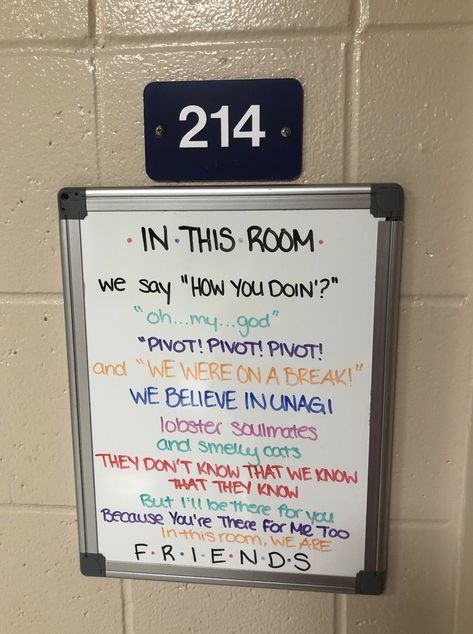 214
• IN • THIS • ROOM •
we say "HOW YOU DOIN'?"
"oh...my...god"
"PIVOT! PIVOT! PIVOT!
and "WE WERE ON A BREAK!"
WE BELIEVE IN UNAGI
lobster soulmates
and smelly cats
THEY DON'T KNOW THAT WE KNOW
THAT THEY KNOW
But I'll be there for you
Because You're There For Me Too
In this room, WE ARE
F•R•I•E•N•D•S